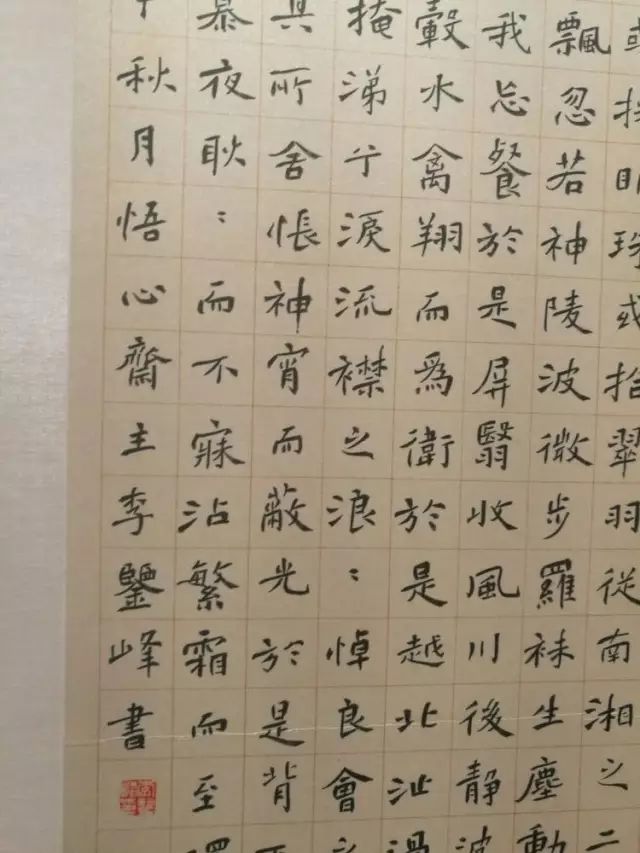 或採明珠或拾翠羽從南湘之二
飄忽若神陵波微步羅袜生塵動
我忘餐於是屏翳收風川後靜波
轂水禽翔而爲衛於是越北沚過
掩涕兮淚流襟之浪〻悼良會之
其所舍悵神宵而蔽光於是背
慕夜耿〻而不寐沾繁霜而至
秋月悟心齋主李鑒峰書